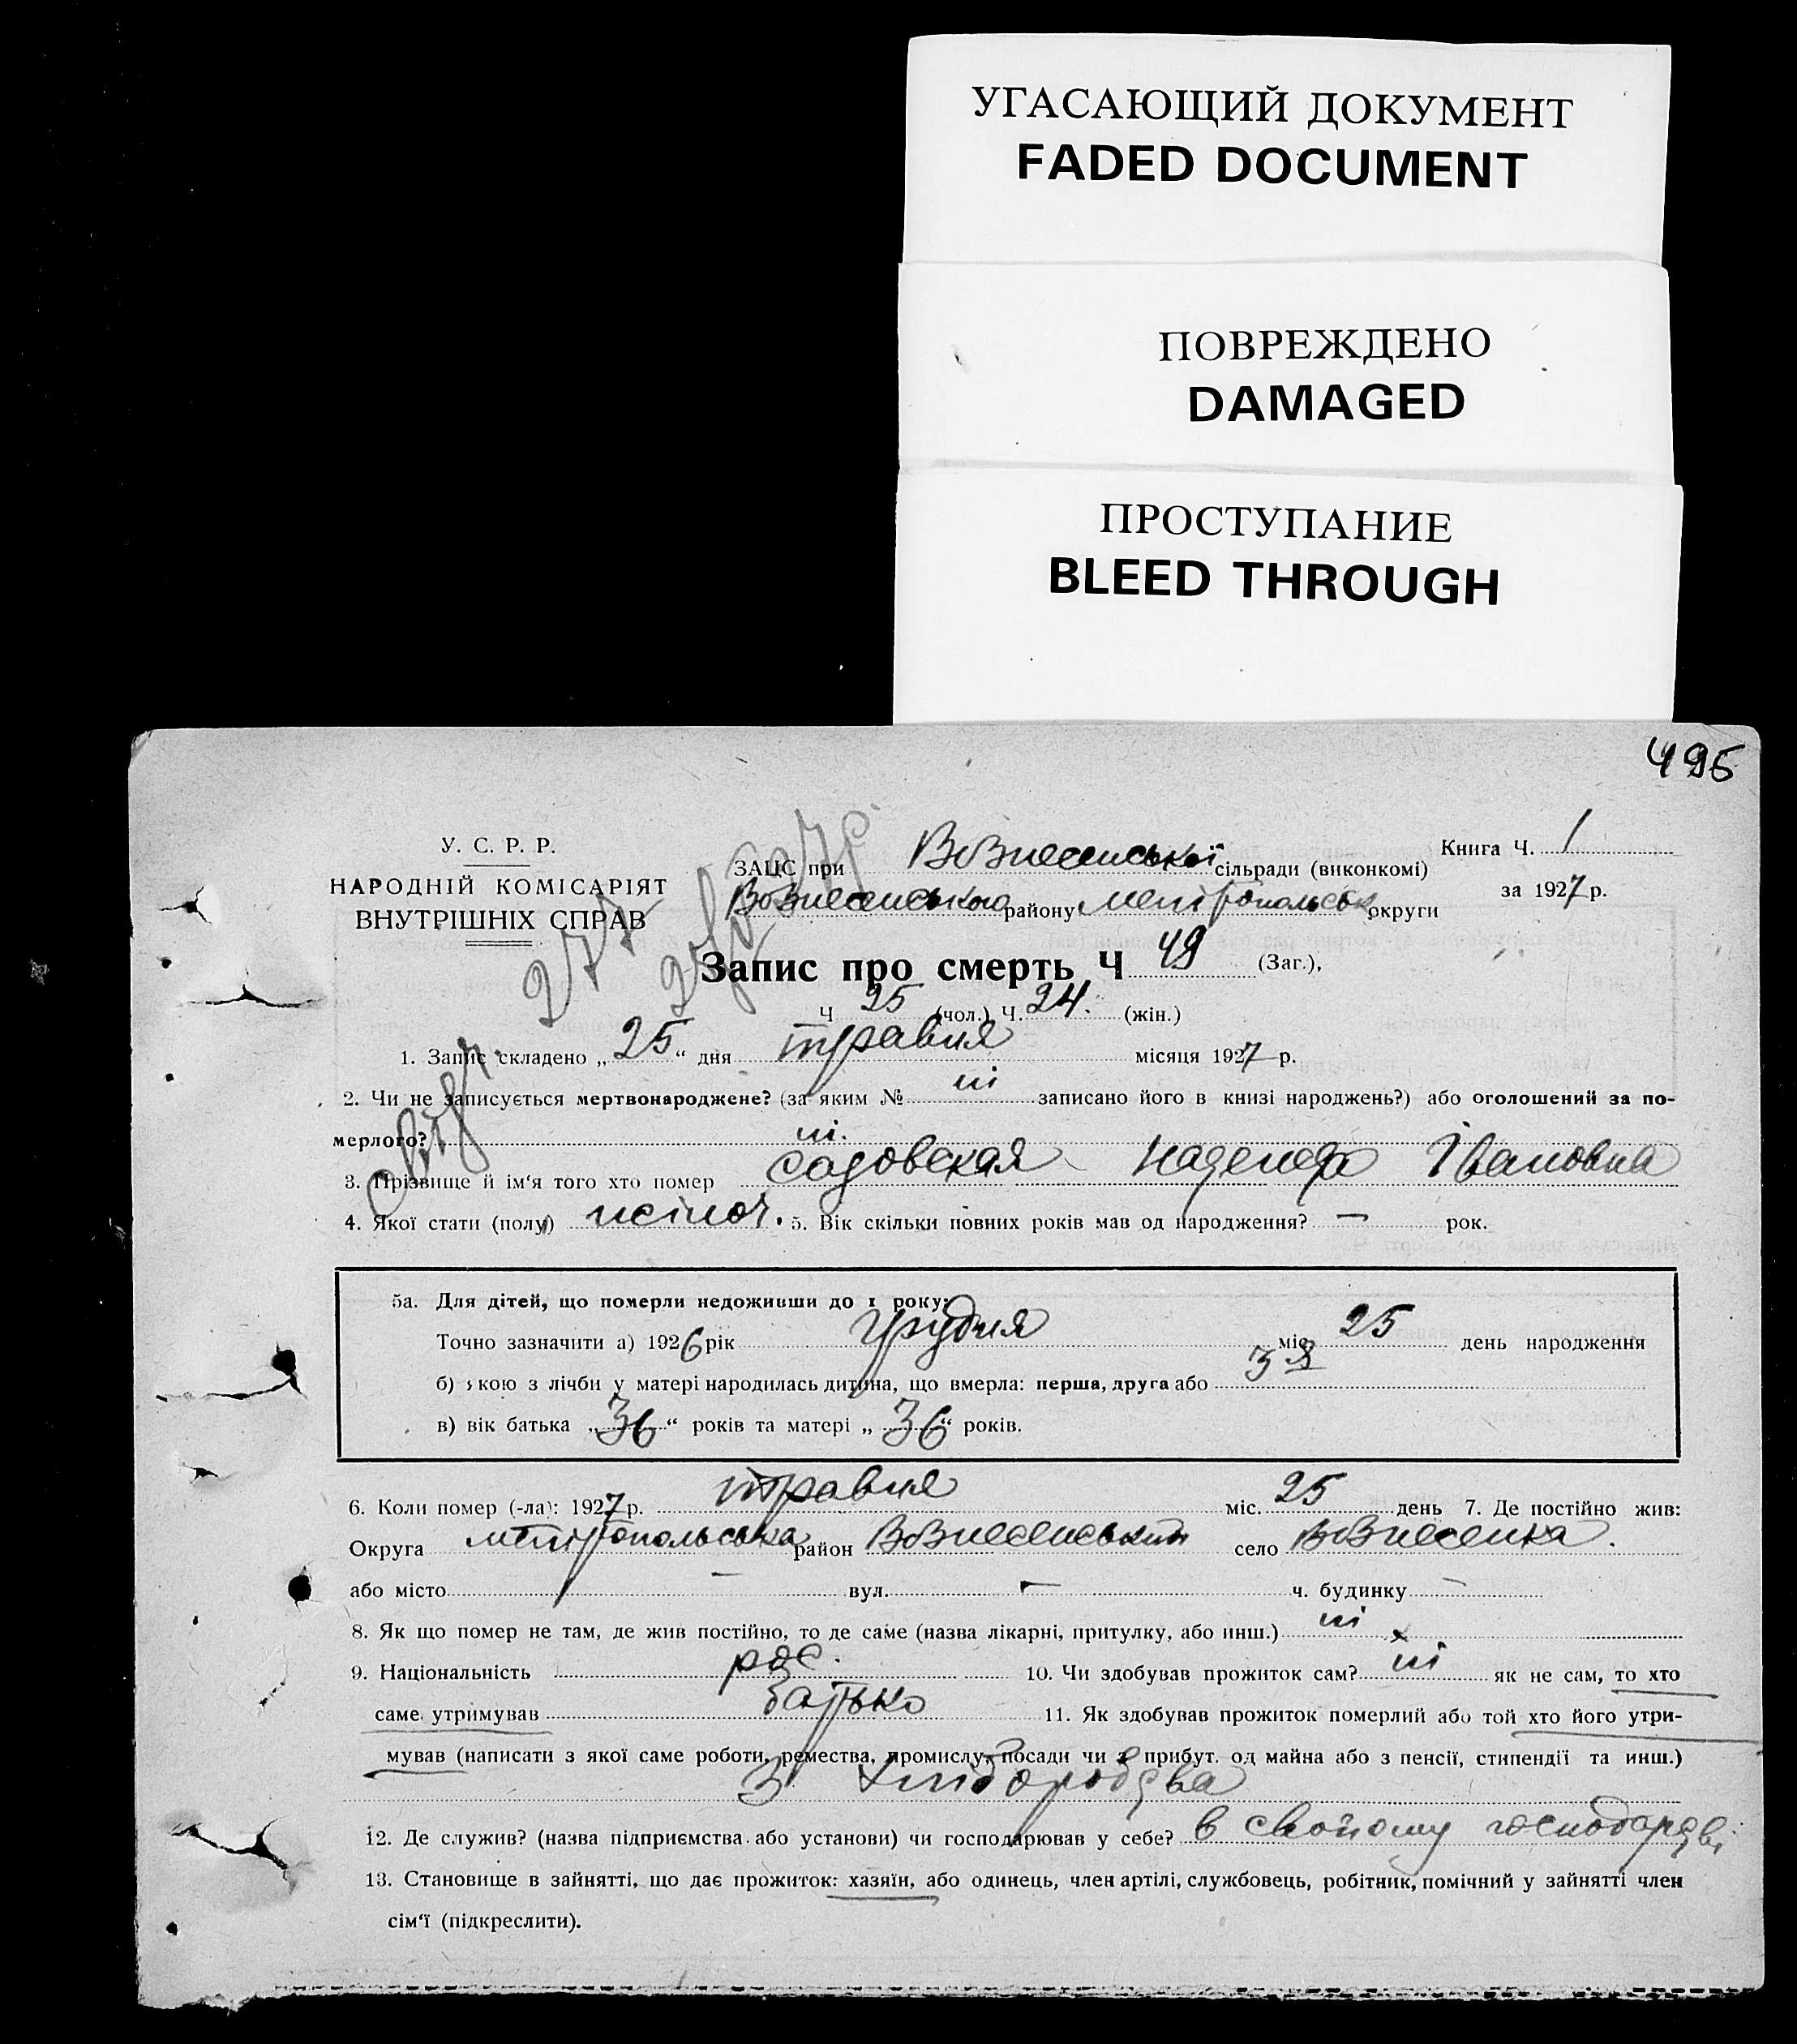 УГАСАЮЩИЙ ДОКУМЕНТ
FADED DOCUMENT
ПОВРЕЖДЕНО
DAMAGED
ПРОСТУПАНИЕ
BLEED THROUGH
495
У. С. Р. Р.
НАРОДНІЙ КОМІСАРІЯТ
ВНУТРІШНІХ СПРАВ
ЗАЦС при Вознесенської сільради (виконкомі)
Вознесенського району Мелітопольськ округи
Книга Ч. 1
за 1927 р.
Запис про смерть Ч 49 (Заг.),
Ч 25 (чол.) Ч. 24. (жін.)
1. Запис складено „25“ дня травня місяця 1927 р.
2. Чи не записується мертвонароджене? (за яким № ні записано його в книзі народжень?) або оголошений за по-
мерлого? ні.
3. Прізвище й ім'я того хто помер Садовская Надежда Івановна
4. Якої стати (полу) жіноч. 5. Вік скільки повних років мав од народження? — рок.
5а. Для дітей, що померли недоживши до 1 року:
Точно зазначити а) 1926 рік грудня міс. 25 день народження
б) якою з лічби у матері народилась дитина, що вмерла: перша, друга або 3 я
в) вік батька „36“ років та матері „36“ років.
6. Коли помер (-ла): 1927 р. травня міс. 25 день 7. Де постійно жив:
Округа Мелітопольська район Вознесенський село Вознесенка.
або місто — вул. — ч. будинку —
8. Як що помер не там, де жив постійно, то де саме (назва лікарні, притулку, або инш.) ні
9. Національність рос. 10. Чи здобував прожиток сам? ні як не сам, то хто
саме утримував батько 11. Як здобував прожиток померлий або той хто його утри-
мував (написати з якої саме роботи, ремества, промислу, посади чи з прибут. од майна або з пенсії, стипендії та инш.)
З хліборобства
12. Де служив? (назва підприємства або установи) чи господарював у себе? в своїому господарстві
13. Становище в зайнятті, що дає прожиток: хазяїн, або одинець, член артілі, службовець, робітник, помічний у зайнятті член
сім'ї (підкреслити).